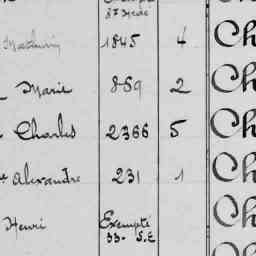 Mathurin 1845 4 Ch
Marie 859 2 Ch
Charles 2366 5 Ch
Alexandre 231 1 Ch
Henri Exempté Ch
33. S.E